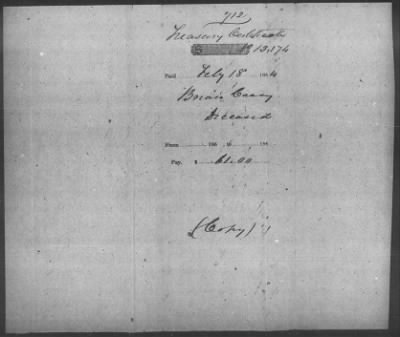 712
Treasury Certificate
13,174
Paid Feby 18 186
Brian
Deceased
From 186 to 186
Pay, $ 61.00
(Copy)